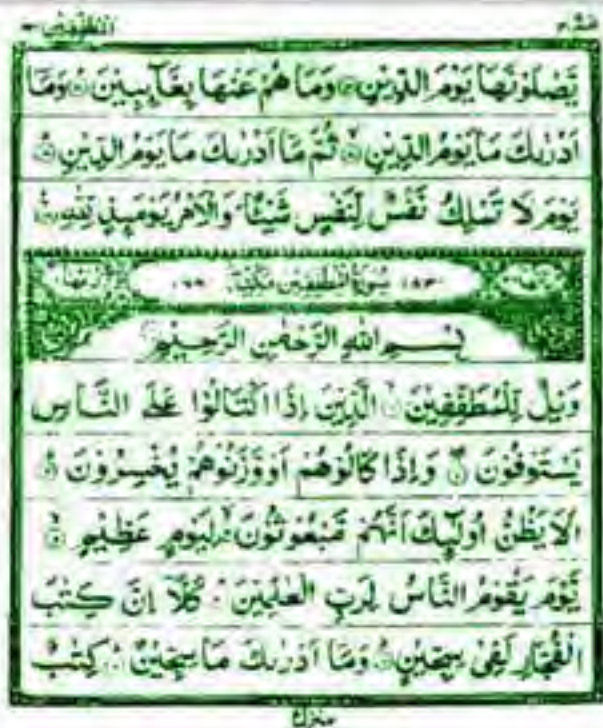 المطففين ٨٣
عم ٣٠
يَّصْلَوْنَهَا يَوْمَ الدِّيْنِ ۝ وَمَا هُمْ عَنْهَا بِغَآئِبِيْنَ ۝ وَمَا
اَدْرٰىكَ مَا يَوْمُ الدِّيْنِ ۝ ثُمَّ مَآ اَدْرٰىكَ مَا يَوْمُ الدِّيْنِ ۝
يَوْمَ لَا تَمْلِكُ نَفْسٌ لِّنَفْسٍ شَيْئًا ۭ وَالْاَمْرُ يَوْمَئِذٍ لِّلّٰهِ ۝
سُوْرَةُ الْمُطَفِّفِيْنَ مَكِّيَّةٌ
بِسْمِ اللهِ الرَّحْمٰنِ الرَّحِيْمِ
وَيْلٌ لِّلْمُطَفِّفِيْنَ ۝ الَّذِيْنَ اِذَا اكْتَالُوْا عَلَى النَّاسِ
يَسْتَوْفُوْنَ ۝ وَاِذَا كَالُوْهُمْ اَوْ وَّزَنُوْهُمْ يُخْسِرُوْنَ ۝
اَلَا يَظُنُّ اُولٰٓئِكَ اَنَّهُمْ مَّبْعُوْثُوْنَ ۝ لِيَوْمٍ عَظِيْمٍ ۝
يَّوْمَ يَقُوْمُ النَّاسُ لِرَبِّ الْعٰلَمِيْنَ ۝ كَلَّآ اِنَّ كِتٰبَ
الْفُجَّارِ لَفِيْ سِجِّيْنٍ ۝ وَمَآ اَدْرٰىكَ مَا سِجِّيْنٌ ۝ كِتٰبٌ